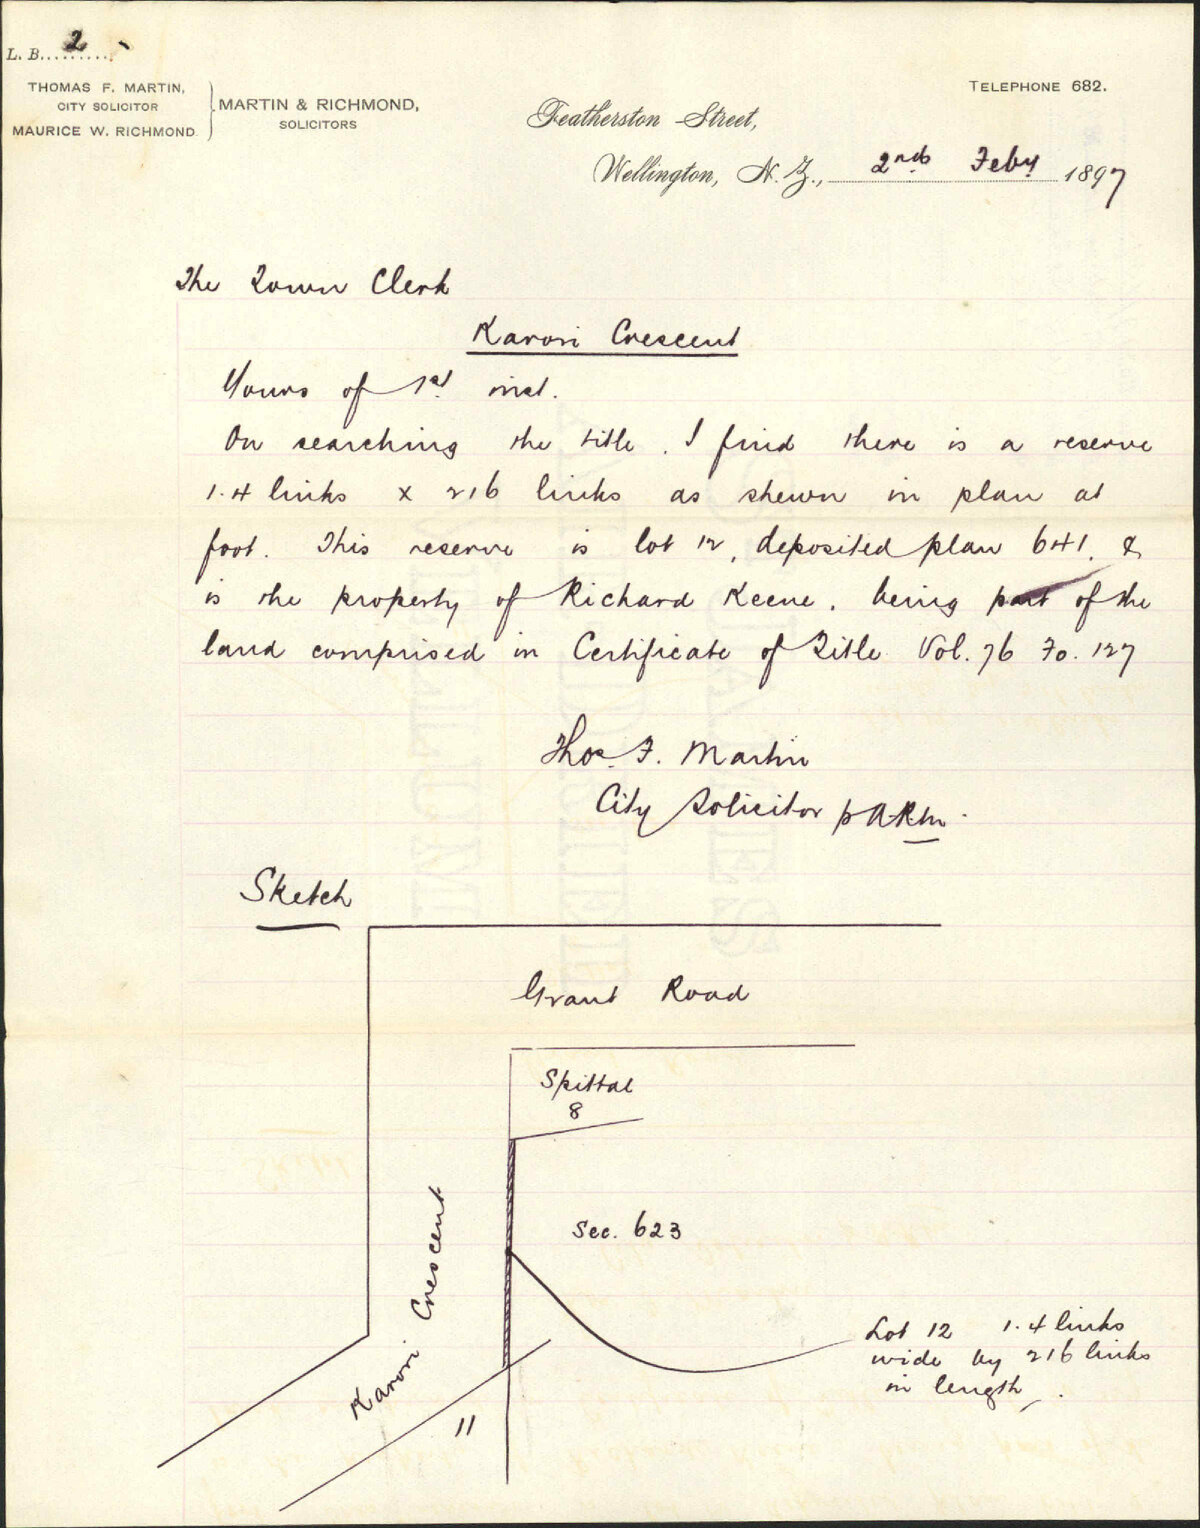 L. B. 2
THOMAS F. MARTIN,
CITY SOLICITOR
MAURICE W. RICHMOND
MARTIN & RICHMOND,
SOLICITORS
TELEPHONE 682.
Featherston Street,
Wellington, N.Z., 2nd Feby 1897
The Town Clerk
Karori Crescent
Yours of 1st inst.
On searching the title. I find there is a reserve
1.4 links x 216 links as shewn in plan at
foot. This reserve is lot 12, deposited plan 641, &
is the property of Richard Keene, being part of the
land comprised in Certificate of Title Vol. 76 Fo. 127
Thos. F. Martin
City Solicitor
Sketch
Grant Road
Spittal
8
Sec. 623
Karori Crescent
Lot 12 1.4 links
wide by 216 links
in length.
11